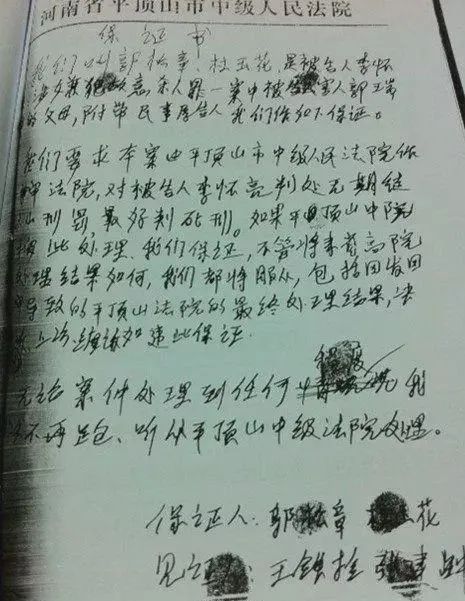 河南省平顶山市中级人民法院
保证书
我们叫郭松章 杜玉花,是被告人李怀
亮故意杀人罪一案中被害人郭
的父母,附带民事原告人 我们作如下保证。
我们要求本案由平顶山市中级人民法院作
法院,对被告人李怀亮判处无期徒
刑,最好判死刑。如果平顶山中院
此处理,我们保证,不管将来省高院
处理结果如何,我们都将服从,包括因发回
导致的平顶山法院的最终处理结果,决
不上访 如违此保证
无论案件处理到任何程度 我
不再 ,听从平顶山中级法院处理。
保证人:郭松章 杜玉花
见证 王铁拴 张